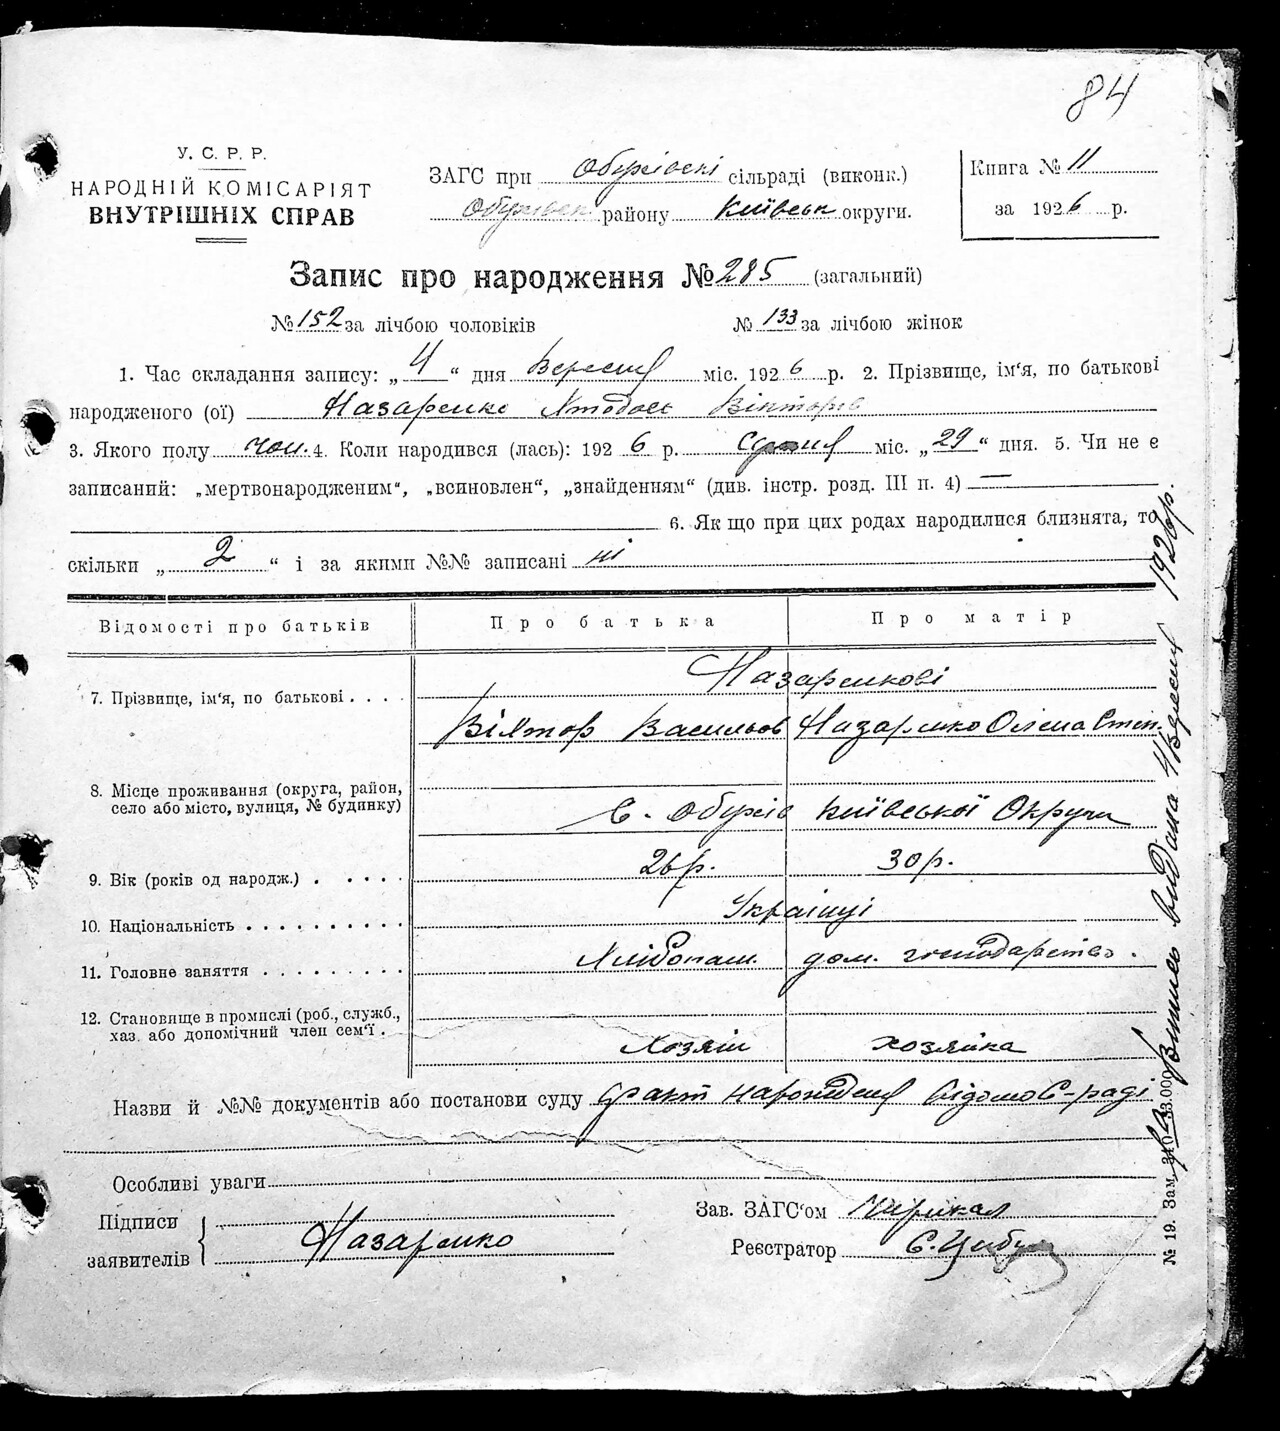 84
У. С. Р. Р.
НАРОДНІЙ КОМІСАРІЯТ
ВНУТРІШНІХ СПРАВ
ЗАГС при Обухівські сільраді (виконк.)
Обухівськ району Київськ округи.
Книга № 11
за 1926 р.
Запис про народження № 285 (загальний)
№ 152 за лічбою чоловіків № 133 за лічбою жінок
1. Час складання запису: „ 4 “ дня Вересня міс. 1926 р. 2. Прізвище, ім'я, по батькові
народженого (ої) Назаренко Вікторів
3. Якого полу чол. 4. Коли народився (лась): 1926 р. Серпня міс. „ 29 “ дня. 5. Чи не є
записаний: „мертвонародженим“, „всиновлен“, „знайденням“ (див. інстр. розд. III п. 4) —
6. Як що при цих родах народилися близнята, то
скільки „ 2 “ і за якими №№ записані ні
Відомості про батьків Про батька Про матір
Назаренкові
7. Прізвище, ім'я, по батькові . . . .
Віктор Васильов Назаренко Олена Степ.
8. Місце проживання (округа, район,
село або місто, вулиця, № будинку)
с. Обухів Київської Округи
9. Вік (років од народж.) . . . . . 26 р. 30 р.
10. Національність . . . . . . . . . . Українці
11. Головне заняття . . . . . . . . . Хлібопаш. дом. господарство.
12. Становище в промислі (роб., служб.,
хаз. або допомічний член сем'ї .
Хозяїн хозяйка
Назви й №№ документів або постанови суду факт народження відомо С-раді
Особливі уваги
Підписи
заявителів
Назаренко
Зав. ЗАГС'ом
Реєстратор С.
№ 19. Зам. 310—33.000
Випись видана 4 Вересня 1926 р.